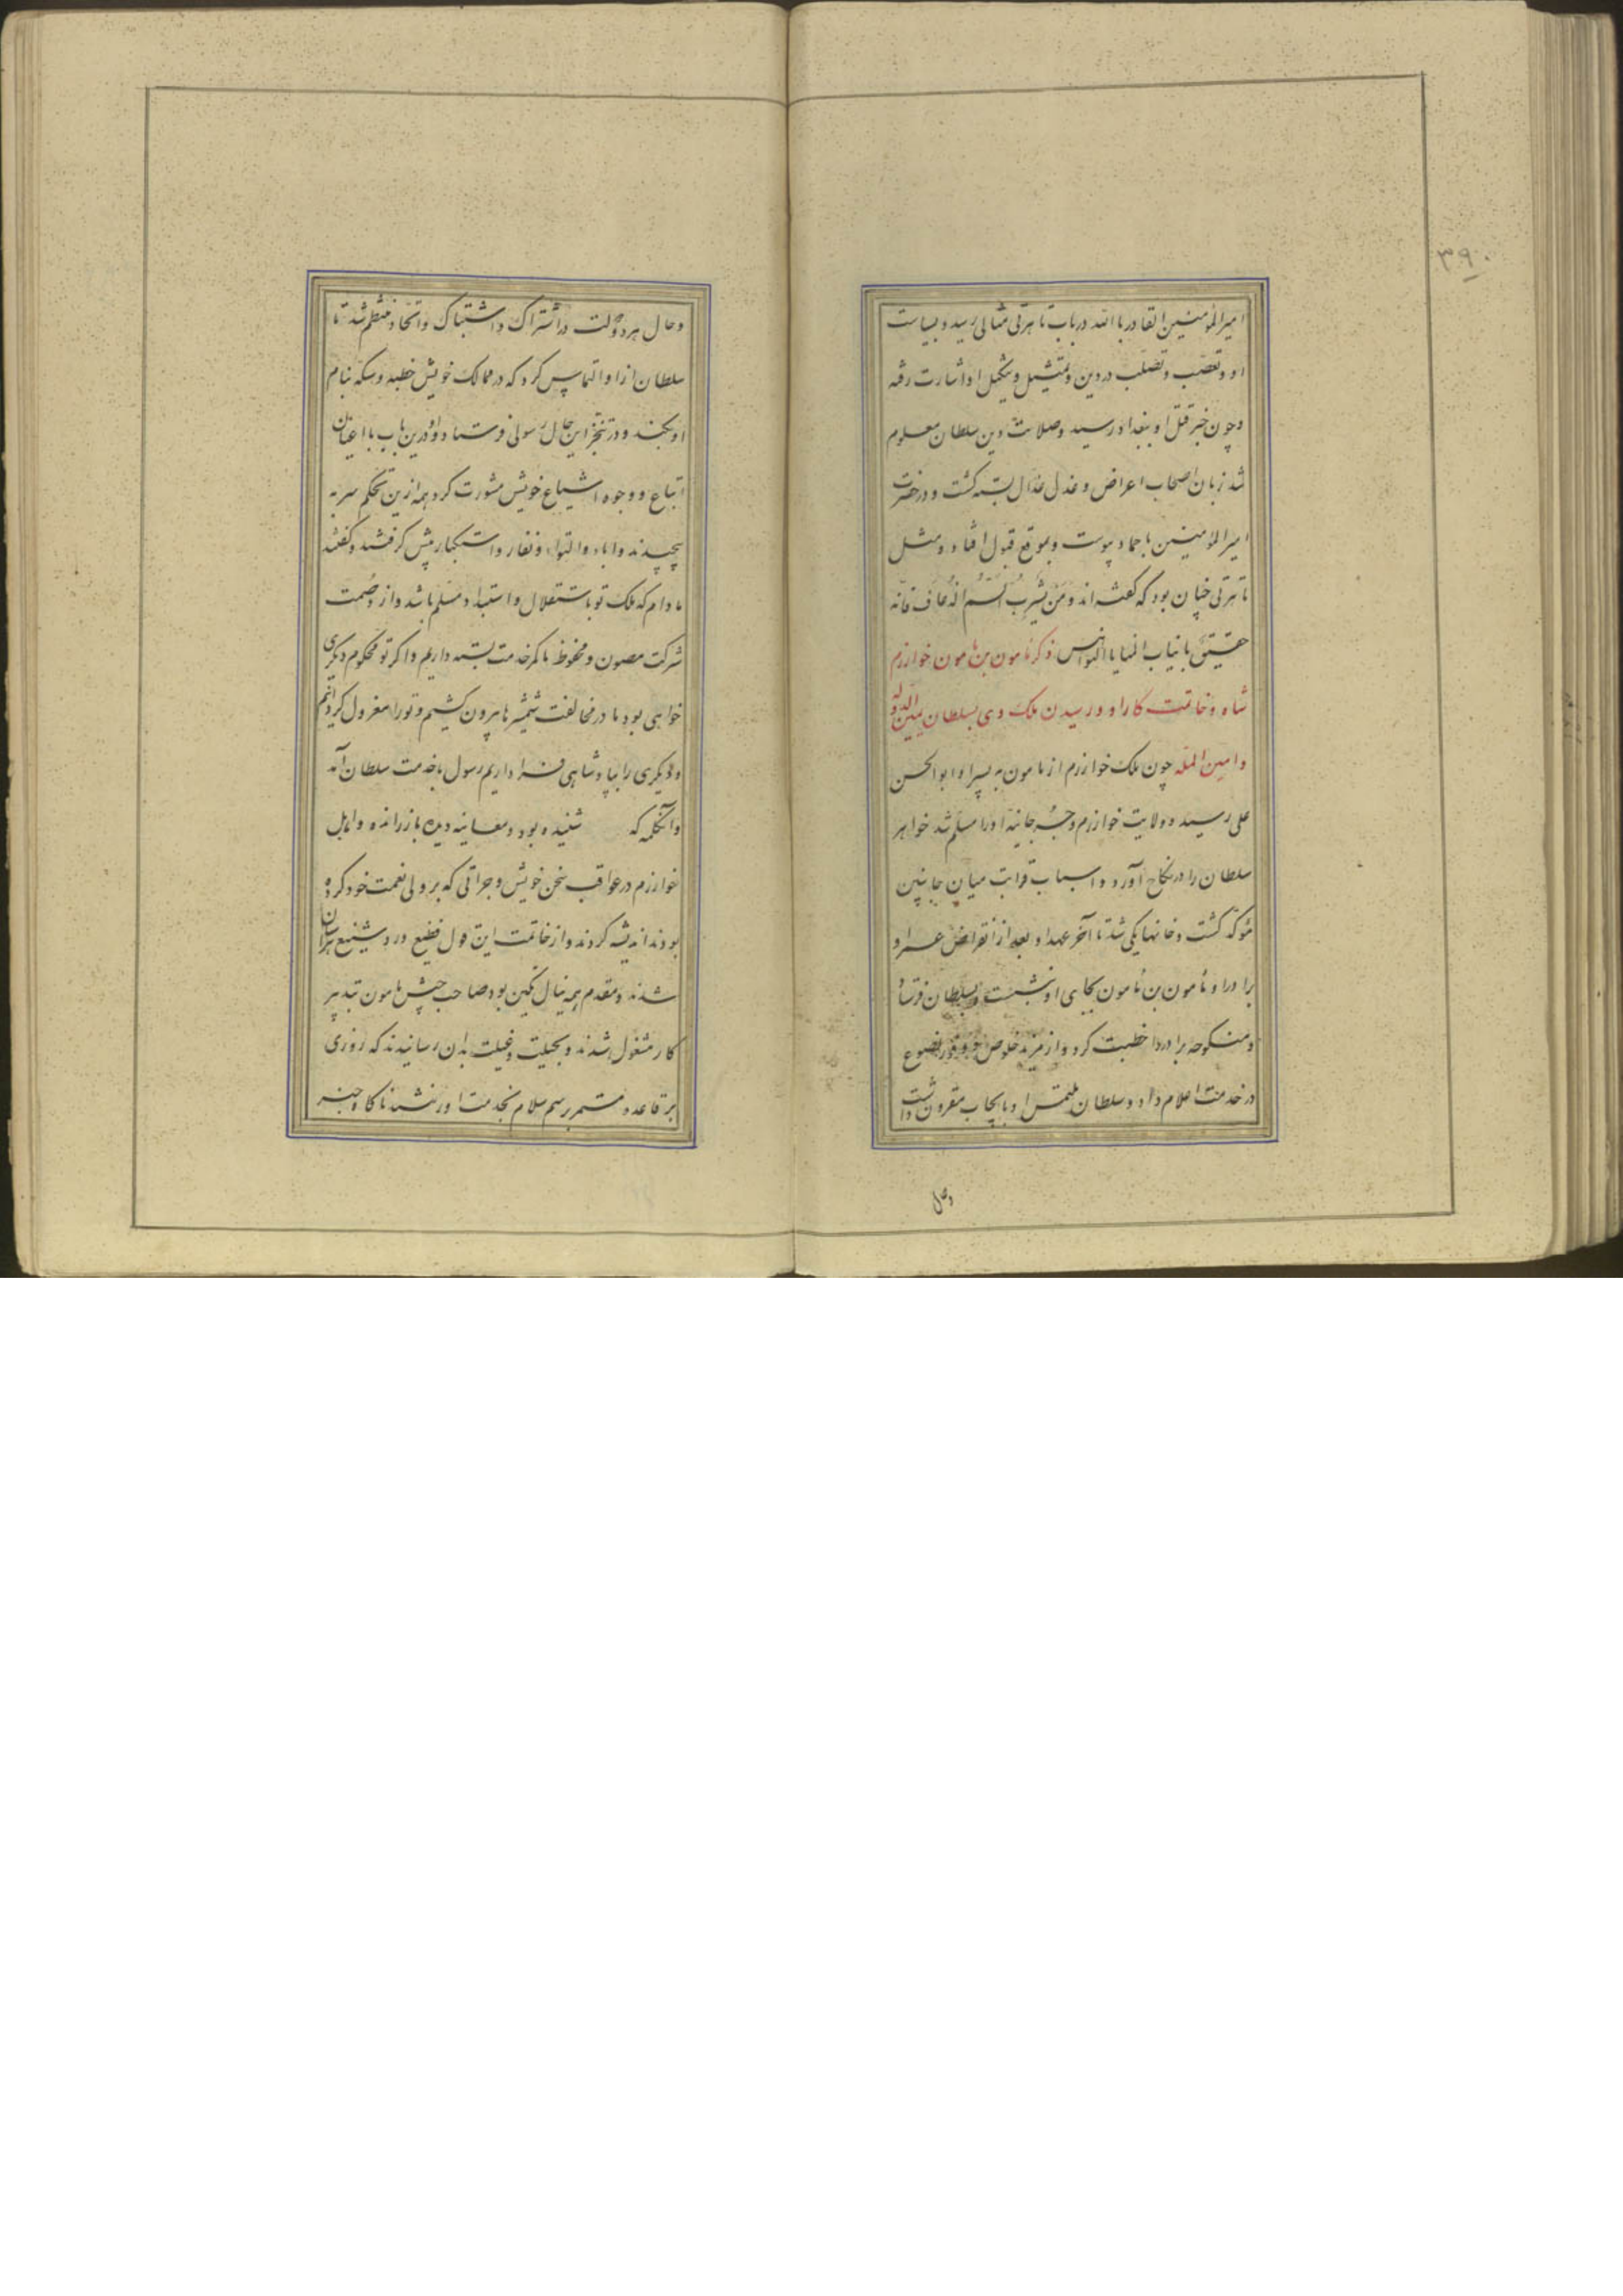 ۳۹۰
امیرالمؤمنین القادر باالله در باب تاهرتی مثالی رسید و بسیاست
او و تعصّب و تصلّب در دین و تمثیل و تنکیل او اشارت رفته
و چون خبر قتل او ببغداد رسید و صلابت دین سلطان معلوم
شد زبان اصحاب اعراض و عذل عذّال بسته کشت و در حضرت
امیرالمؤمنین باحماد پیوست و بموقع قبول افتاد و مثل
تاهرتی چنان بود که گفته‌اند و من یشرب السّم الذعاف فانّه
حقیق بانیاب المنایا النواهس ذکر مامون بن مامون خوارزم
شاه و خاتمت کار او و رسیدن ملک وی بسلطان یمین الدوله
و امین المله چون ملک خوارزم از مامون به پسر او ابوالحسن
علی رسید و ولایت خوارزم و جرجانیه او را مسلّم شد خواهر
سلطان را در نکاح آورد و اسباب قرابت میان جانبین
مؤکّد کشت و خانها یکی شد تا آخر عهد او و بعد از انقراض عمر او
برادر او مأمون بن مأمون بجای او نشست و بسلطان فرستاد
و منکوحه برادر را خطبت کرد و از مزید خلوص خود و فرط خضوع
در خدمت اعلام داد و سلطان ملتمس او بایجاب مقرون داشت
وحال
وحال هر دو دولت در اشتراک و اشتباک و اتّحاد منتظم شد تا
سلطان ازو التماس کرد که در ممالک خویش خطبه و سکّه بنام
او بکند و در تنجّز این حال رسولی فرستاد و او درین باب با اعیان
اتباع و وجوه اشیاع خویش مشورت کرد همه ازین تحکم سر به
پیچیدند و اباء و التواء و نفار و استکبار پیش کرفتند و کفتند
مادام که ملک تو باستقلال و استبداد مسلّم باشد و از وصمت
شرکت مصون و محفوظ ما کمر خدمت بسته داریم و اکر تو محکوم دیکری
خواهی بود ما در مخالفت شمشیرها بیرون کشیم و تو را معزول کردانیم
و دیکری را بپادشاهی فرا داریم رسول باخدمت سلطان آمد
و آنکلمه که شنیده بود و معاینه دیده باز راند و اماثل
خوارزم در عواقب سخن خویش و جراتی که بر ولی نعمت خود کرده
بودند اندیشه کردند و از خاتمت این قول فظیع و رد شنیع هراسان
شدند و مقدم همه نیال تکین بود صاحب جیش مامون تبدبیر
کار مشغول شدند و بحیلت و غیلت بدان رسانیدند که روزی
بر قاعده مستمر برسم سلام بخدمت او رفتند ناکاه خبر